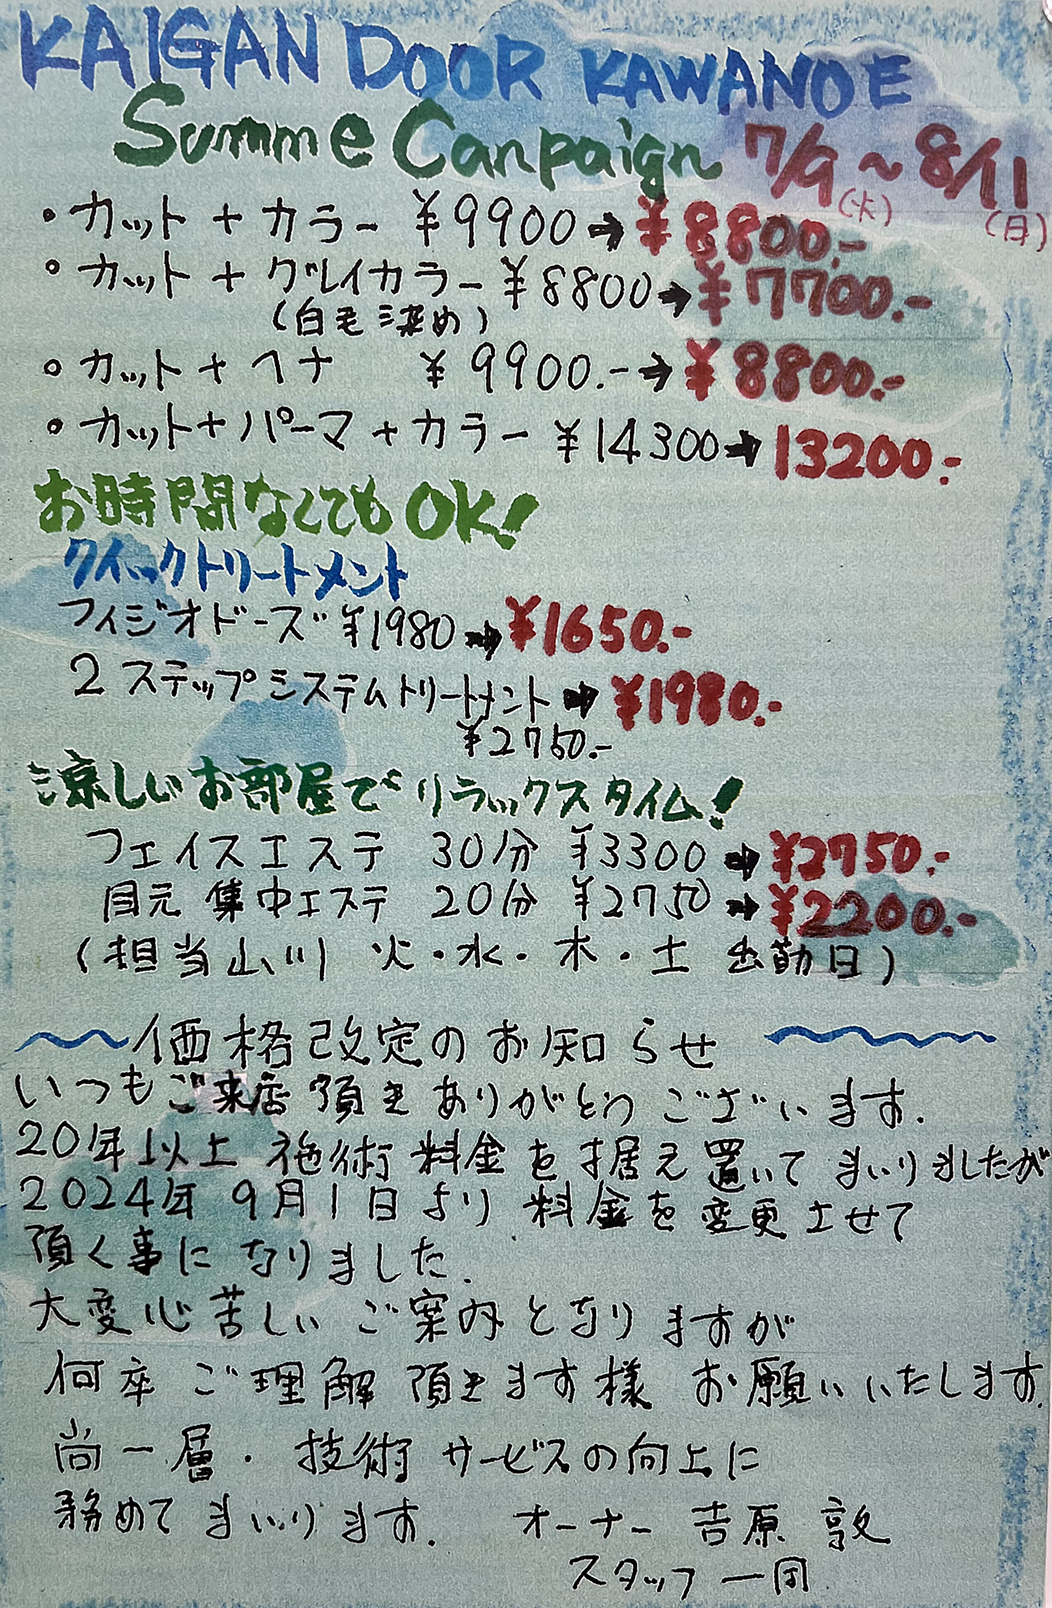 KAIGAN DOOR KAWANOE
Summe Canpaign 7/9(火)～8/11(日)
・カット＋カラー ¥9900→¥8800.-
・カット＋グレイカラー ¥8800→¥7700.-
(白毛染め)
・カット＋ヘナ ¥9900.-→¥8800.-
・カット＋パーマ＋カラー ¥14300→13200.-
お時間なくてもOK!
クイックトリートメント
フィジオドーズ ¥1980→¥1650.-
2ステップシステムトリートメント→¥1980.-
¥2750.-
涼しいお部屋でリラックスタイム!
フェイスエステ 30分 ¥3300→¥2750.-
目元集中エステ 20分 ¥2750→¥2200.-
(担当山川 火・水・木・土 出勤日)
価格改定のお知らせ
いつもご来店頂きありがとうございます.
20年以上 施術料金を据え置いてまいりましたが
2024年9月1日より 料金を変更させて
頂く事になりました.
大変心苦しいご案内となりますが
何卒ご理解頂きます様お願いいたします.
尚一層・技術サービスの向上に
務めてまいります. オーナー 吉原 敦
スタッフ一同